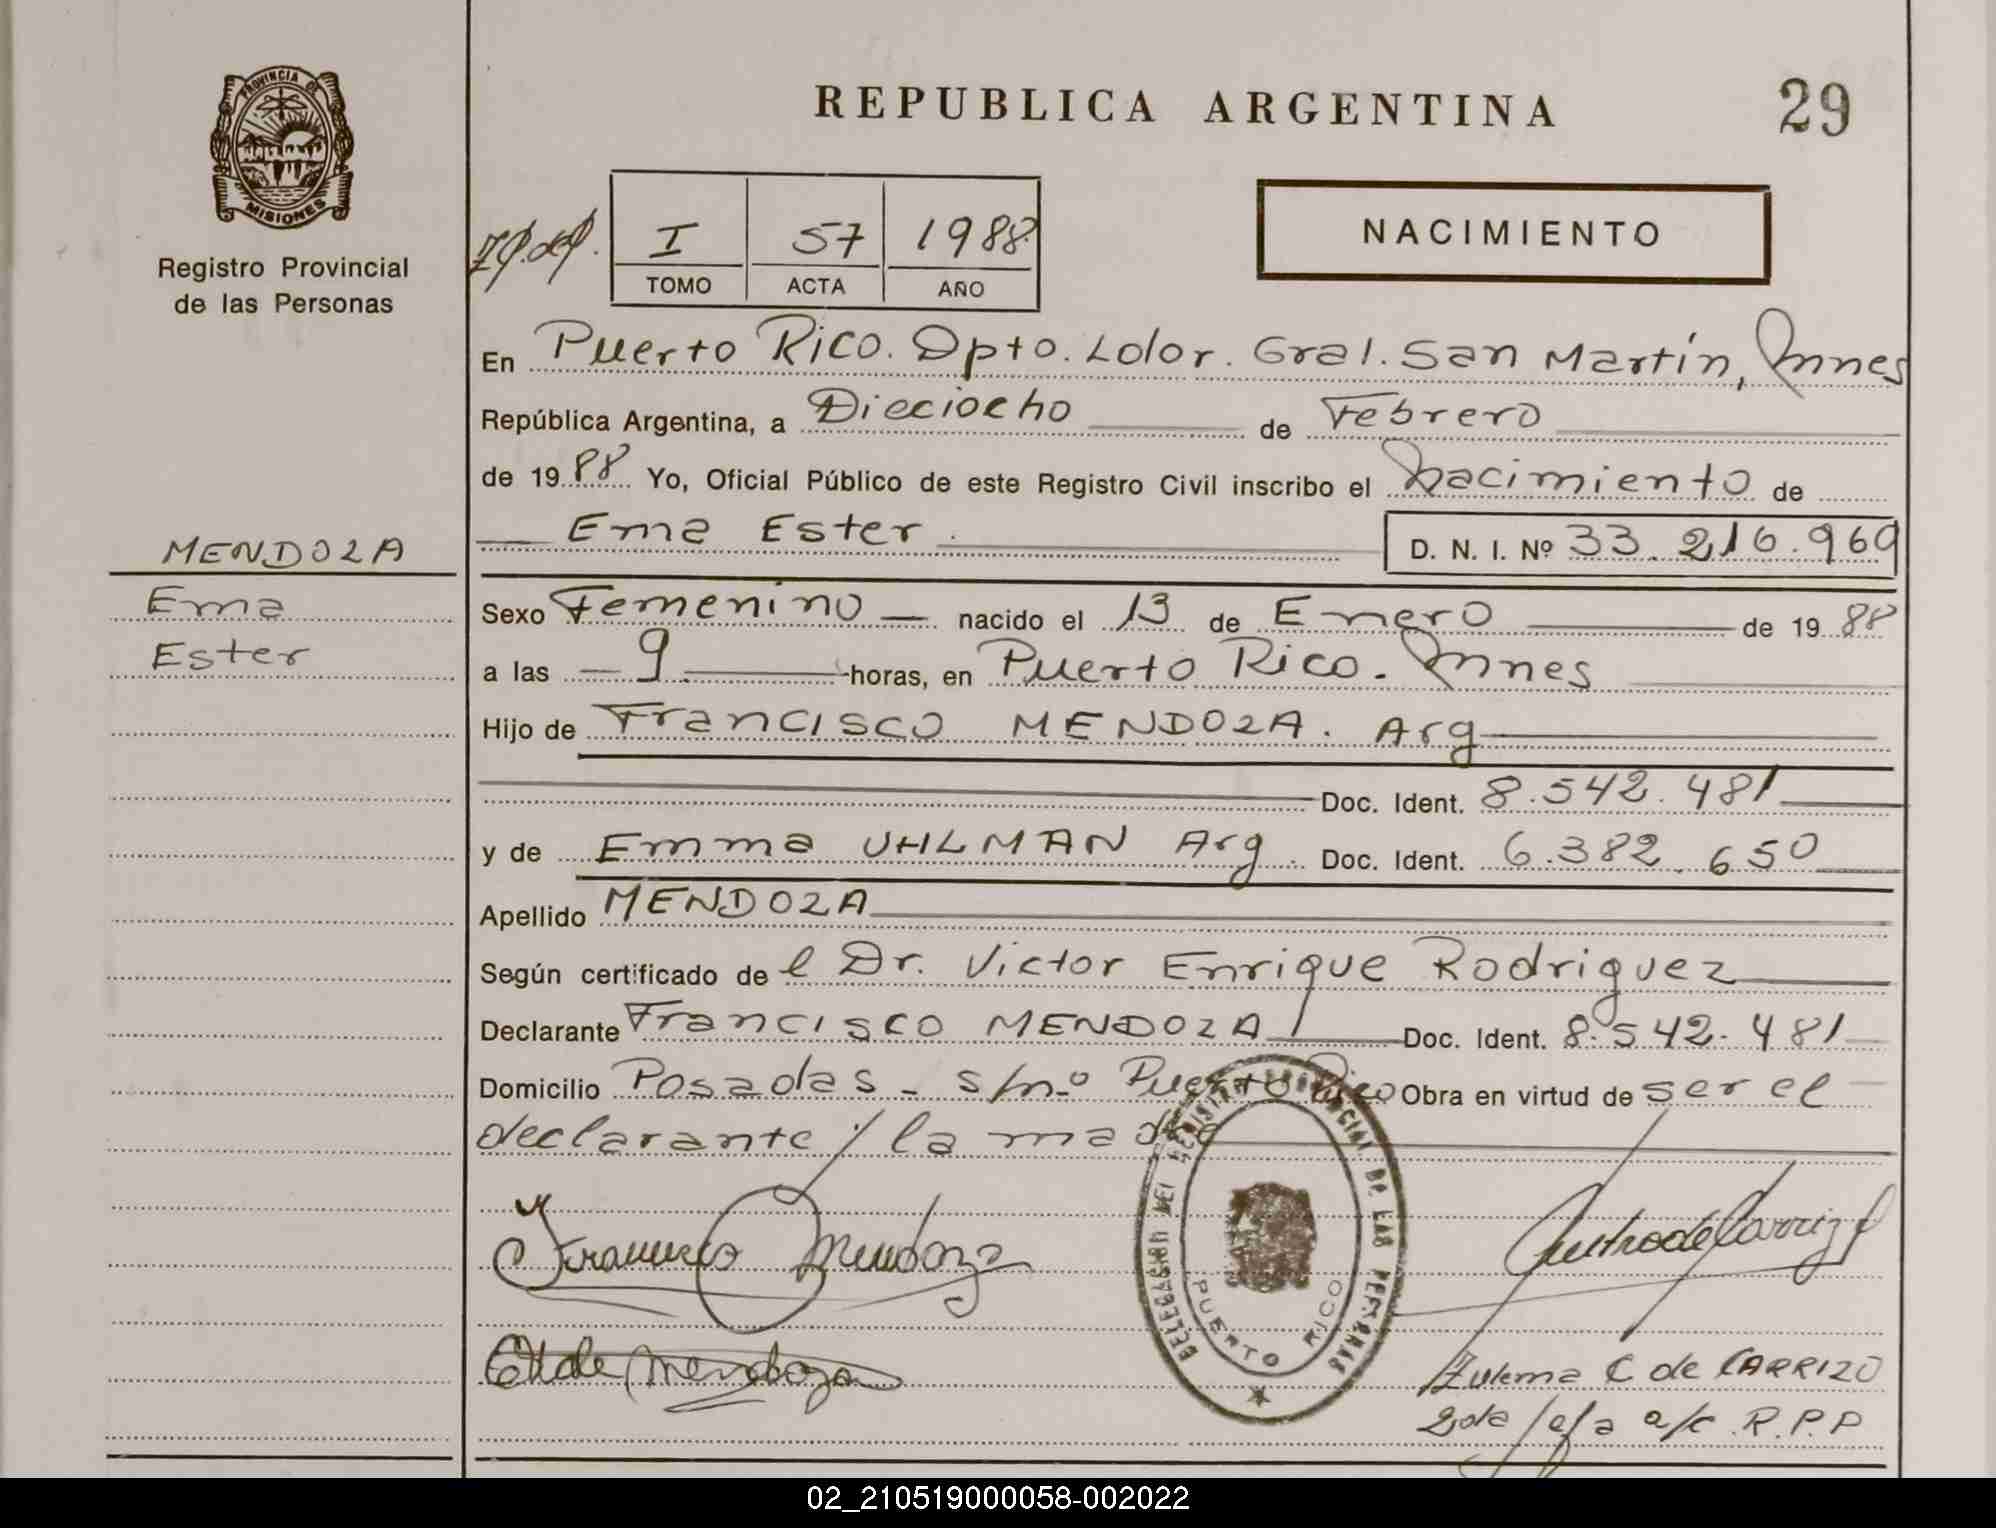 REPUBLICA ARGENTINA
29
PROVINCIA DE
MISIONES
Registro Provincial
de las Personas
I 57 1988
TOMO ACTA AÑO
NACIMIENTO
En Puerto Rico. Dpto. Ldor. Gral. San Martín, Mnes
República Argentina, a Dieciocho de Febrero
de 1988 Yo, Oficial Público de este Registro Civil inscribo el Nacimiento de
Ema Ester D. N. I. Nº 33.216.969
MENDOZA
Ema
Ester
Sexo Femenino nacido el 13 de Enero de 1988
a las 9 horas, en Puerto Rico. Mnes
Hijo de Francisco MENDOZA. Arg
Doc. Ident. 8.542.481
y de Emma UHLMAN Arg. Doc. Ident. 6.382.650
Apellido MENDOZA
Según certificado de l Dr. Victor Enrique Rodriguez
Declarante Francisco MENDOZA Doc. Ident. 8.542.481
Domicilio Posadas - s/nº Puerto Rico Obra en virtud de ser el
declarante y la madre
Francisco Mendoza
DELEGACION DEL REGISTRO PROVINCIAL DE LAS PERSONAS
PUERTO RICO
de Carrizo
de Mendoza
Zulema C de CARRIZO
2da Jefa a/c R.P.P
02_210519000058-002022